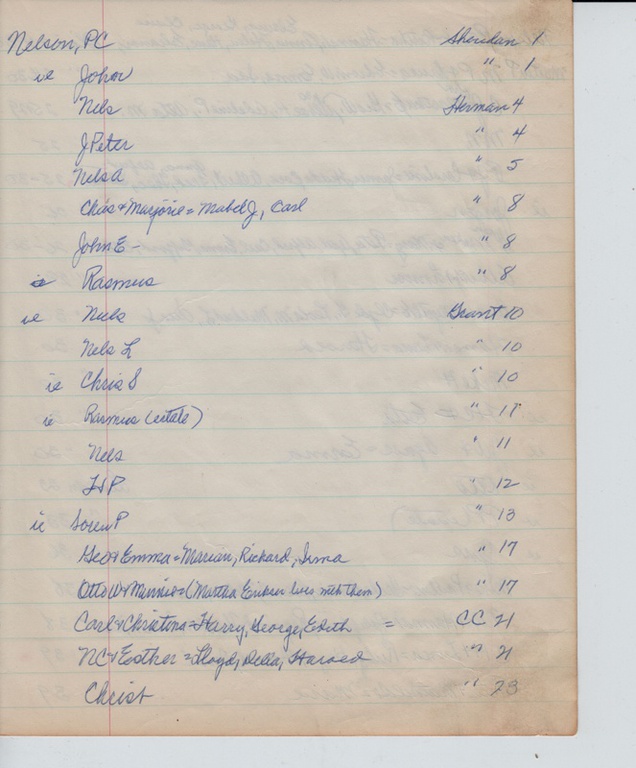 Nelson, PC Sheridan 1
ie John " 1
Nels Herman 4
J Peter " 4
Nels A " 5
Chas & Marjorie = Mabel J, Carl " 8
John E - " 8
ie Rasmus " 8
ie Niels Grant 10
Nels L " 10
ie Chris S " 10
ie Rasmus (estate) " 11
Nels " 11
" 12
ie Soren P " 13
Geo & Emma = Marian, Rickard, Irma " 17
Otto W & Minnie = (Martha Erikser lives with them) " 17
Carl & Christina = Harry, George, Edith = CC 21
NC & Esther = Lloyd, Delia, Harold " 21
Christ " 23